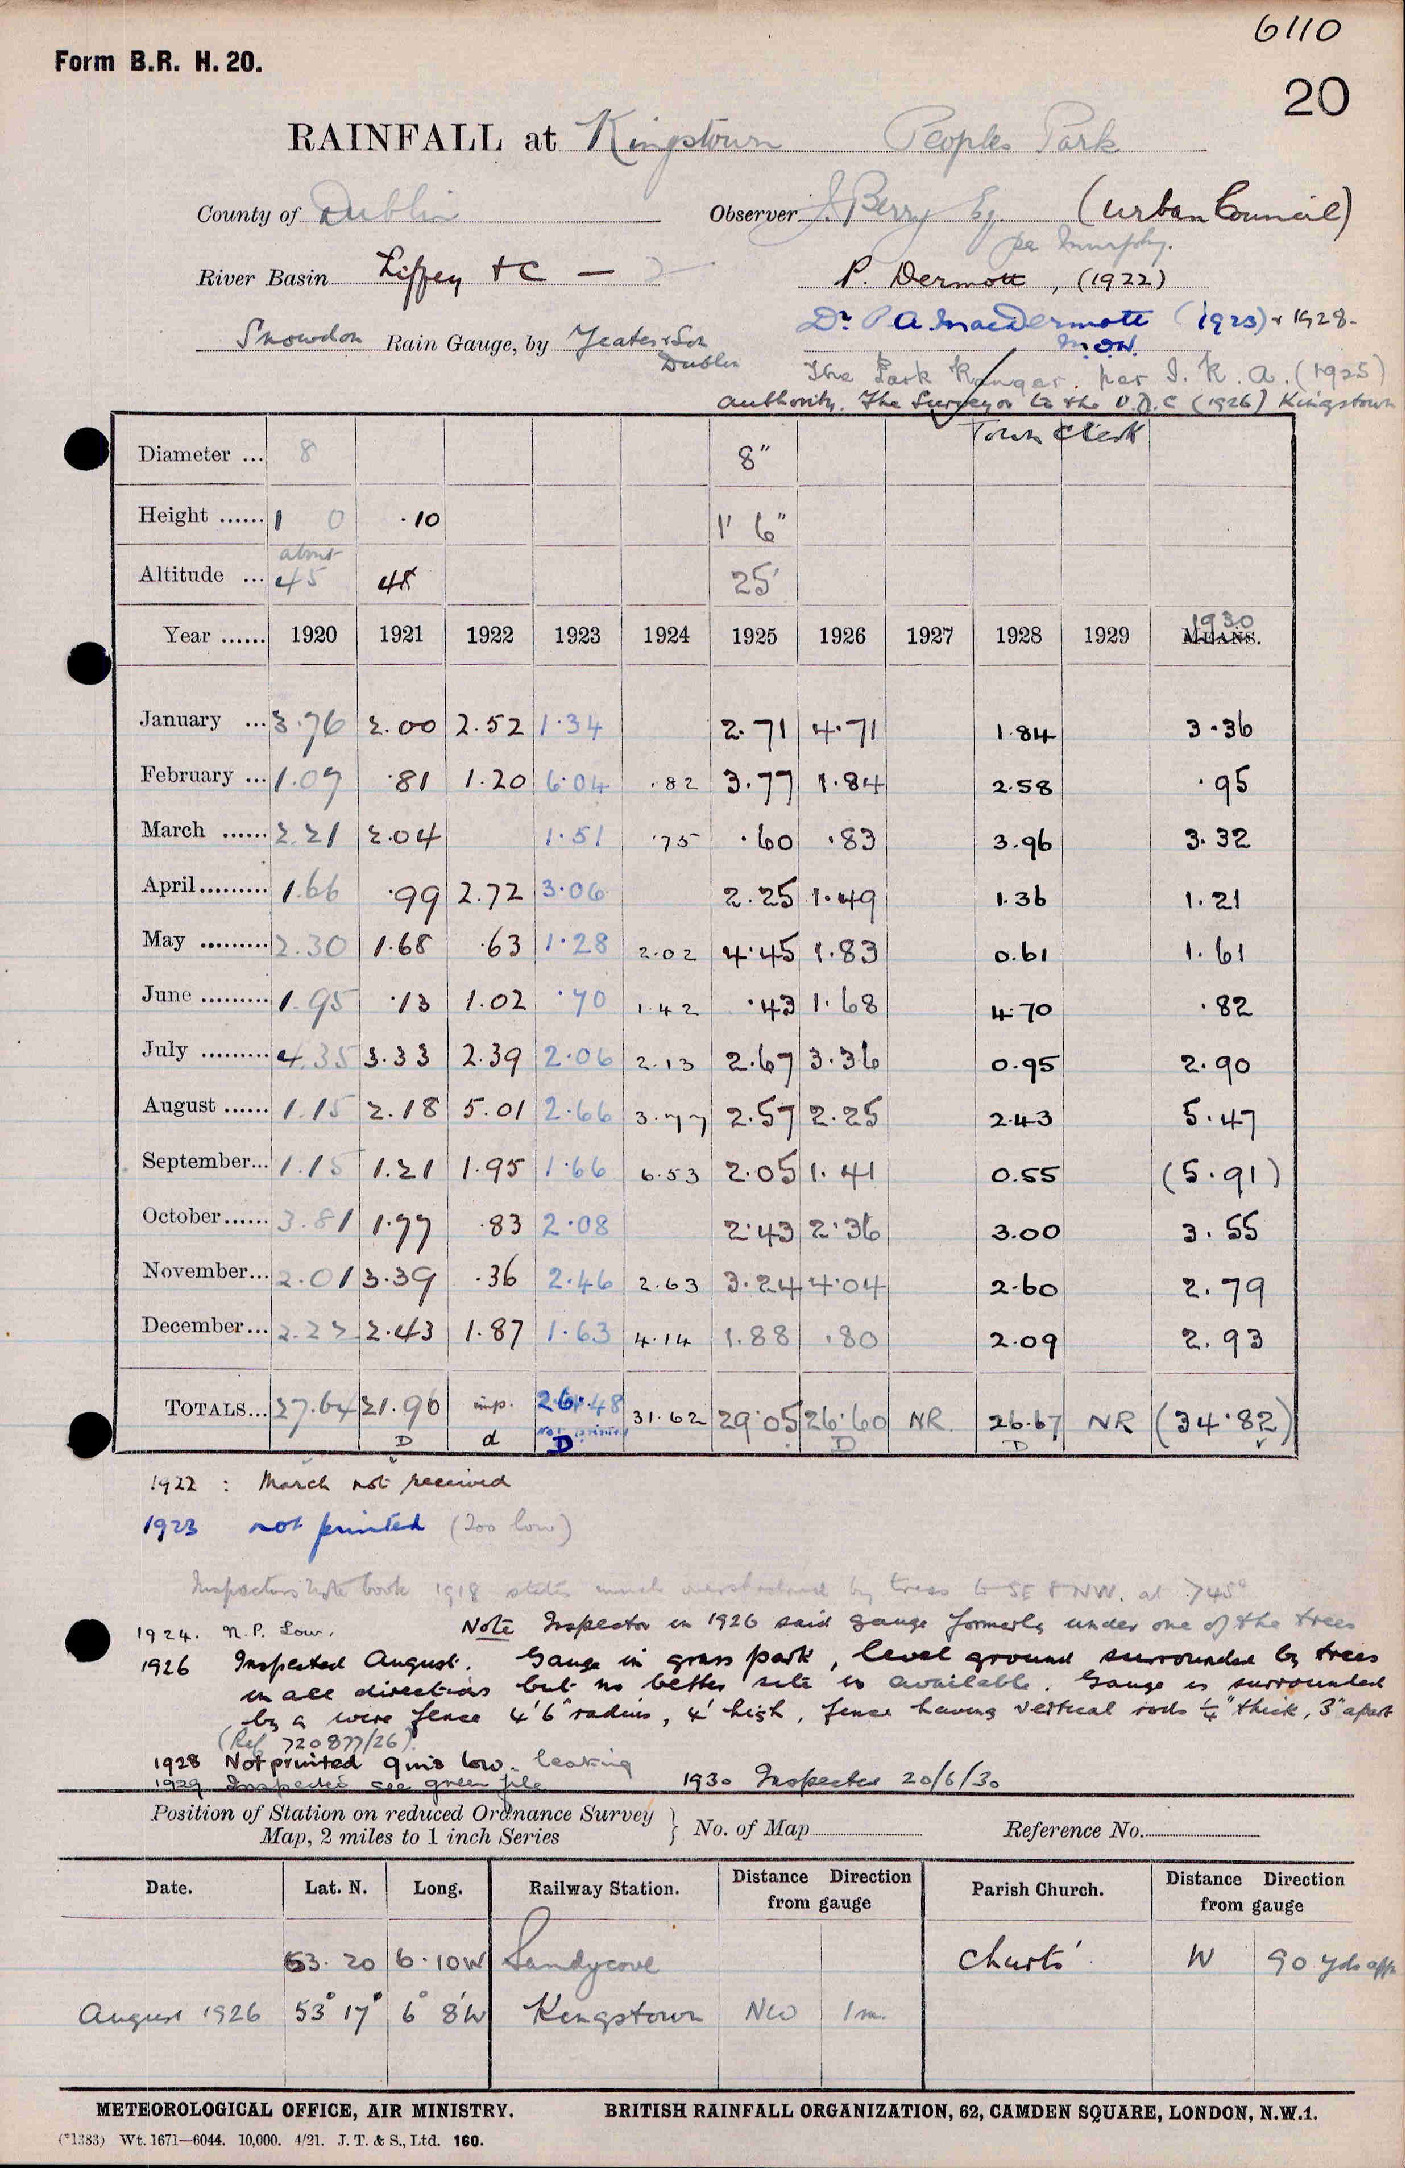 6110
Form B.R. H. 20.
20
RAINFALL at Kingstown Peoples Park
County of Dublin Observer J. Berry Esq (Urban Council)
per Murphy.
River Basin Liffey + C — 2 P. Dermott, (1922)
Dr P A MacDermott (1923) + 1928.
M.O.W.
Snowdon Rain Gauge, by Yeates & Son Dublin
The Park Ranger. per I. R. A. (1925)
Authority. The Surveyor to the U.D.C (1926) Kingstown
Town Clerk
Diameter ... 8 8"
Height ...... 1 0 .10 1' 6"
Altitude ... about 45 45 25'
Year ...... 1920 1921 1922 1923 1924 1925 1926 1927 1928 1929 MEANS. 1930
January ... 3.76 2.00 2.52 1.34 2.71 4.71 1.84 3.36
February ... 1.07 .81 1.20 6.04 .82 3.77 1.84 2.58 .95
March ...... 2.21 2.04 1.51 .75 .60 .83 3.96 3.32
April ......... 1.66 .99 2.72 3.06 2.25 1.49 1.36 1.21
May ......... 2.30 1.68 .63 1.28 2.02 4.45 1.83 0.61 1.61
June ......... 1.95 .13 1.02 .70 1.42 .43 1.68 4.70 .82
July ......... 4.35 3.33 2.39 2.06 2.13 2.67 3.36 0.95 2.90
August ...... 1.15 2.18 5.01 2.66 3.77 2.57 2.25 2.43 5.47
September... 1.15 1.21 1.95 1.66 6.53 2.05 1.41 0.55 (5.91)
October...... 3.81 1.77 .83 2.08 2.43 2.36 3.00 3.55
November... 2.01 3.39 .36 2.46 2.63 3.24 4.04 2.60 2.79
December... 2.23 2.43 1.87 1.63 4.14 1.88 .80 2.09 2.93
TOTALS... 27.64 21.96 imp. 26.48 31.62 29.05 26.60 NR 26.67 NR (34.82)
D d not printed D D D
1922 : March not received
1923 not printed (Too low)
Inspectors Note book 1918 states much overshadowed by trees to SE & NW. at 745°
1924. N.P. Low. Note Inspector in 1926 said gauge formerly under one of the trees
1926 Inspected August. Gauge in grass park, level ground surrounded by trees
in all directions but no better site is available. Gauge is surrounded
by a wire fence 4'6" radius, 4' high, fence having vertical rods ¼" thick, 3" apart
(Ref 720877/26).
1928 Not printed 9 ins low. leaking
1929 Inspected see green file 1930 Inspected 20/6/30
Position of Station on reduced Ordnance Survey
Map, 2 miles to 1 inch Series } No. of Map Reference No.
Date. Lat. N. Long. Railway Station. Distance Direction from gauge Parish Church. Distance Direction from gauge
53. 20 6.10W Sandycove Christ' W 90 yds app
August 1926 53° 17' 6° 8'W Kingstown NW 1m.
METEOROLOGICAL OFFICE, AIR MINISTRY. BRITISH RAINFALL ORGANIZATION, 62, CAMDEN SQUARE, LONDON, N.W.1.
(*1383) Wt. 1671—6044. 10,000. 4/21. J. T. & S., Ltd. 160.